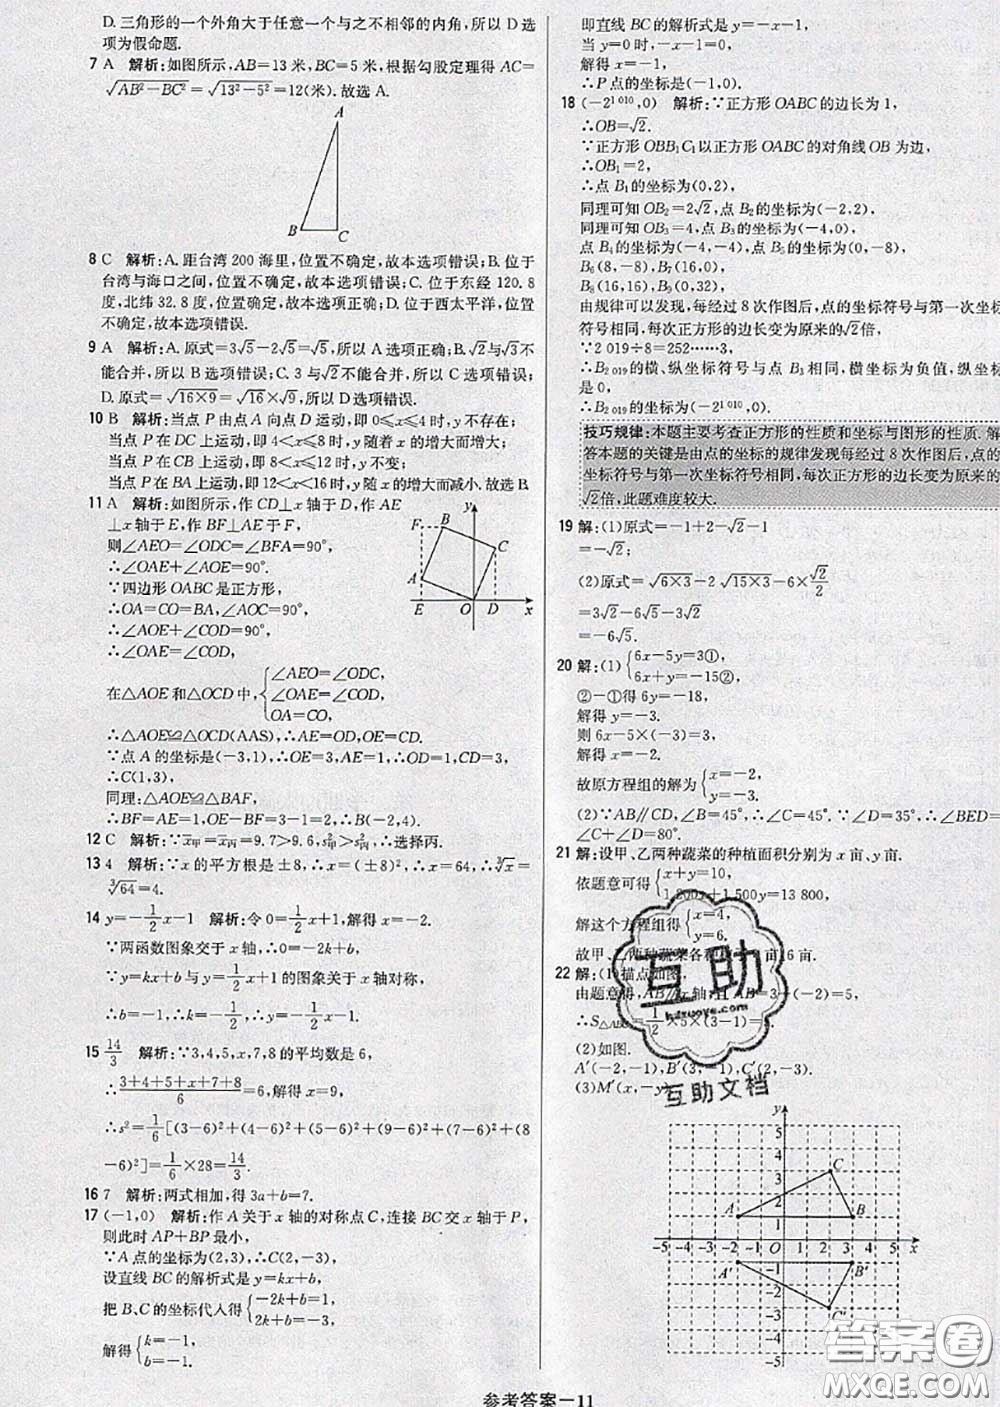 D. 三角形的一个外角大于任意一个与之不相邻的内角,所以 D 选
项为假命题.
7 A 解析:如图所示,AB=13 米,BC=5 米,根据勾股定理得 AC=
√(AB²−BC²)=√(13²−5²)=12(米). 故选 A.
A
B
C
8 C 解析:A. 距台湾 200 海里,位置不确定,故本选项错误;B. 位于
台湾与海口之间,位置不确定,故本选项错误;C. 位于东经 120.8
度,北纬 32.8 度,位置确定,故本选项正确;D. 位于西太平洋,位置
不确定,故本选项错误.
9 A 解析:A. 原式=3√5−2√5=√5,所以 A 选项正确;B. √2与√3不
能合并,所以 B 选项错误;C. 3 与√2不能合并,所以 C 选项错误;
D. 原式=√(16×9)=√16×√9,所以 D 选项错误.
10 B 解析:当点 P 由点 A 向点 D 运动,即 0≤x≤4 时,y 不存在;
当点 P 在 DC 上运动,即 4<x≤8 时,y 随着 x 的增大而增大;
当点 P 在 CB 上运动,即 8<x≤12 时,y 不变;
当点 P 在 BA 上运动,即 12<x<16 时,y 随 x 的增大而减小. 故选 B.
11 A 解析:如图所示,作 CD⊥x 轴于 D,作 AE
⊥x 轴于 E,作 BF⊥AE 于 F,
则∠AEO=∠ODC=∠BFA=90°,
∴∠OAE+∠AOE=90°.
∵四边形 OABC 是正方形,
∴OA=CO=BA,∠AOC=90°,
∴∠AOE+∠COD=90°,
∴∠OAE=∠COD,
在△AOE 和△OCD 中,{∠AEO=∠ODC,
∠OAE=∠COD,
OA=CO,
∴△AOE≌△OCD(AAS),∴AE=OD,OE=CD.
∵点 A 的坐标是(−3,1),∴OE=3,AE=1,∴OD=1,CD=3,
∴C(1,3),
同理:△AOE≌△BAF,
∴BF=AE=1,OE−BF=3−1=2,∴B(−2,4).
F
B
C
A
E
O
D
x
y
12 C 解析:∵x̄甲=x̄丙=9.7>9.6,s²甲>s²丙,∴选择丙.
13 4 解析:∵x 的平方根是±8,∴x=(±8)²,∴x=64,∴∛x=
∛64=4.
14 y=−1/2x−1 解析:令 0=1/2x+1,解得 x=−2.
∵两函数图象交于 x 轴,∴0=−2k+b,
∵y=kx+b 与 y=1/2x+1 的图象关于 x 轴对称,
∴b=−1,∴k=−1/2,∴y=−1/2x−1.
15 14/3 解析:∵3,4,5,x,7,8 的平均数是 6,
∴(3+4+5+x+7+8)/6=6,解得 x=9,
∴s²=1/6[(3−6)²+(4−6)²+(5−6)²+(9−6)²+(7−6)²+(8
−6)²]=1/6×28=14/3.
16 7 解析:两式相加,得 3a+b=7.
17 (−1,0) 解析:作 A 关于 x 轴的对称点 C,连接 BC 交 x 轴于 P,
则此时 AP+BP 最小,
∵A 点的坐标为(2,3),∴C(2,−3),
设直线 BC 的解析式是 y=kx+b,
把 B、C 的坐标代入得{−2k+b=1,
2k+b=−3,
解得{k=−1,
b=−1,
即直线 BC 的解析式是 y=−x−1,
当 y=0 时,−x−1=0,
解得 x=−1,
∴P 点的坐标是(−1,0).
18 (−2^1 010,0) 解析:∵正方形 OABC 的边长为 1,
∴OB=√2.
∵正方形 OBB₁C₁ 以正方形 OABC 的对角线 OB 为边,
∴OB₁=2,
∴点 B₁ 的坐标为(0,2),
同理可知 OB₂=2√2,点 B₂ 的坐标为(−2,2),
同理可知 OB₃=4,点 B₃ 的坐标为(−4,0),
点 B₄ 的坐标为(−4,−4),点 B₅ 的坐标为(0,−8),
B₆(8,−8),B₇(16,0)
B₈(16,16),B₉(0,32),
由规律可以发现,每经过 8 次作图后,点的坐标符号与第一次坐标
符号相同,每次正方形的边长变为原来的√2倍,
∵2 019÷8=252……3,
∴B₂ ₀₁₉ 的横、纵坐标符号与点 B₃ 相同,横坐标为负值,纵坐标
是 0,
∴B₂ ₀₁₉ 的坐标为(−2^1 010,0).
技巧规律:本题主要考查正方形的性质和坐标与图形的性质. 解
答本题的关键是由点的坐标的规律发现每经过 8 次作图后,点的
坐标符号与第一次坐标符号相同,每次正方形的边长变为原来的
√2倍,此题难度较大.
19 解:(1)原式=−1+2−√2−1
=−√2;
(2)原式=√(6×3)−2√(15×3)−6×√2/2
=3√2−6√5−3√2
=−6√5.
20 解:(1){6x−5y=3①,
6x+y=−15②,
②−①得 6y=−18,
解得 y=−3.
则 6x−5×(−3)=3,
解得 x=−2.
故原方程组的解为{x=−2,
y=−3.
(2)∵AB∥CD,∠B=45°,∴∠C=∠B=45°. ∵∠D=35°,∴∠BED=
∠C+∠D=80°.
21 解:设甲、乙两种蔬菜的种植面积分别为 x 亩、y 亩.
依题意可得{x+y=10,
1 800x+1 500y=13 800,
解这个方程组得{x=4,
y=6.
故甲、乙两种蔬菜各种植了 4 亩、6 亩.
22 解:(1)描点如图,
由题意得,AB∥x 轴,且 AB=3−(−2)=5,
∴S△ABC=1/2×5×(3−1)=5.
(2)如图.
A′(−2,−1),B′(3,−1),C′(2,−3).
(3)M′(x,−y).
y
5
4
3
2
1
C
A
B
−5 −4 −3 −2 −1 O 1 2 3 4 5 x
−1
A′
B′
−2
−3
C′
−4
−5
互助
hdzuoye.com
互助文档
答案圈
MXQE.COM
参考答案—11